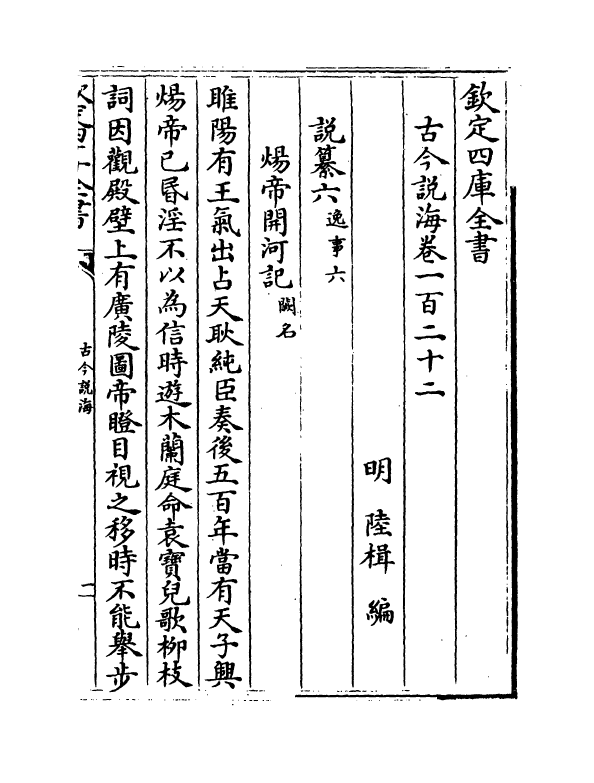 欽定四庫全書
古今説海卷一百二十二
明 陸楫 編
説纂六 逸事六
煬帝開河記 闕名
睢陽有王氣出占天耿純臣奏後五百年當有天子興
煬帝已昬淫不以為信時遊木蘭庭命袁寶兒歌柳枝
詞因觀殿壁上有廣陵圖帝瞪目視之移時不能舉步
古今説海